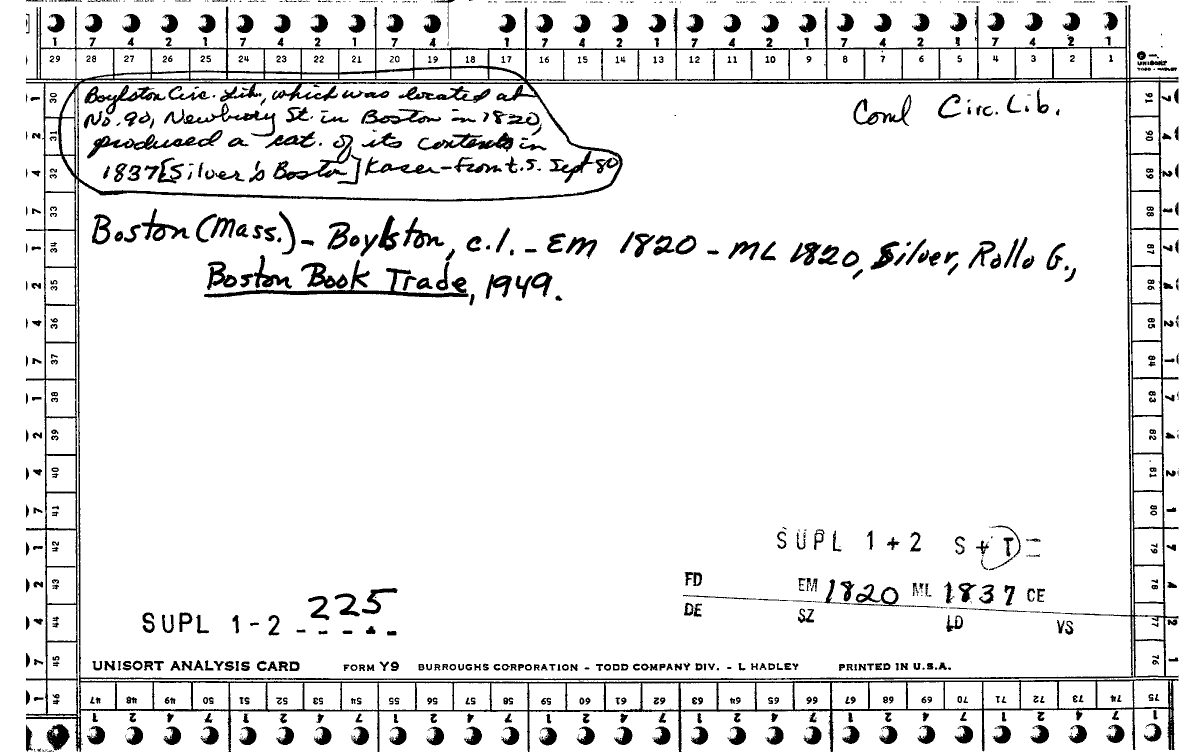 1 7 4 2 1 7 4 2 1 7 4 1 7 4 2 1 7 4 2 1 7 4 2 1 7 4 2 1
29 28 27 26 25 24 23 22 21 20 19 18 17 16 15 14 13 12 11 10 9 8 7 6 5 4 3 2 1
UNISORT
TODD - HADLEY
Boylston Circ. Lib., which was located at
No. 90, Newbury St. in Boston in 1820,
produced a cat. of its contents in
1837 [Silver's Boston] Kaser - From t.s. Sept 80
Coml Circ. Lib.
Boston (Mass.) - Boylston, c.l. - EM 1820 - ML 1820, Silver, Rollo G.,
Boston Book Trade, 1949.
SUPL 1+2 S+T=
FD EM 1820 ML 1837 CE
DE SZ LD VS
SUPL 1-2 225
UNISORT ANALYSIS CARD FORM Y9 BURROUGHS CORPORATION - TODD COMPANY DIV. - L HADLEY PRINTED IN U.S.A.
30 31 32 33 34 35 36 37 38 39 40 41 42 43 44 45 46
91 90 89 88 87 86 85 84 83 82 81 80 79 78 77 76
47 48 49 50 51 52 53 54 55 56 57 58 59 60 61 62 63 64 65 66 67 68 69 70 71 72 73 74 75